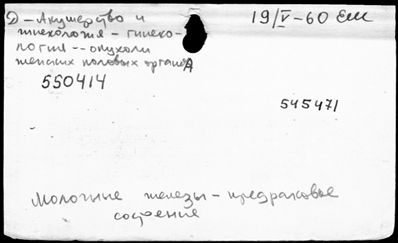 Д – Акушерство и
гинекология – гинеко-
логия -- опухоли
женских половых органов
19/V – 60
550414
545471
Молочные железы – предраковое
состояние